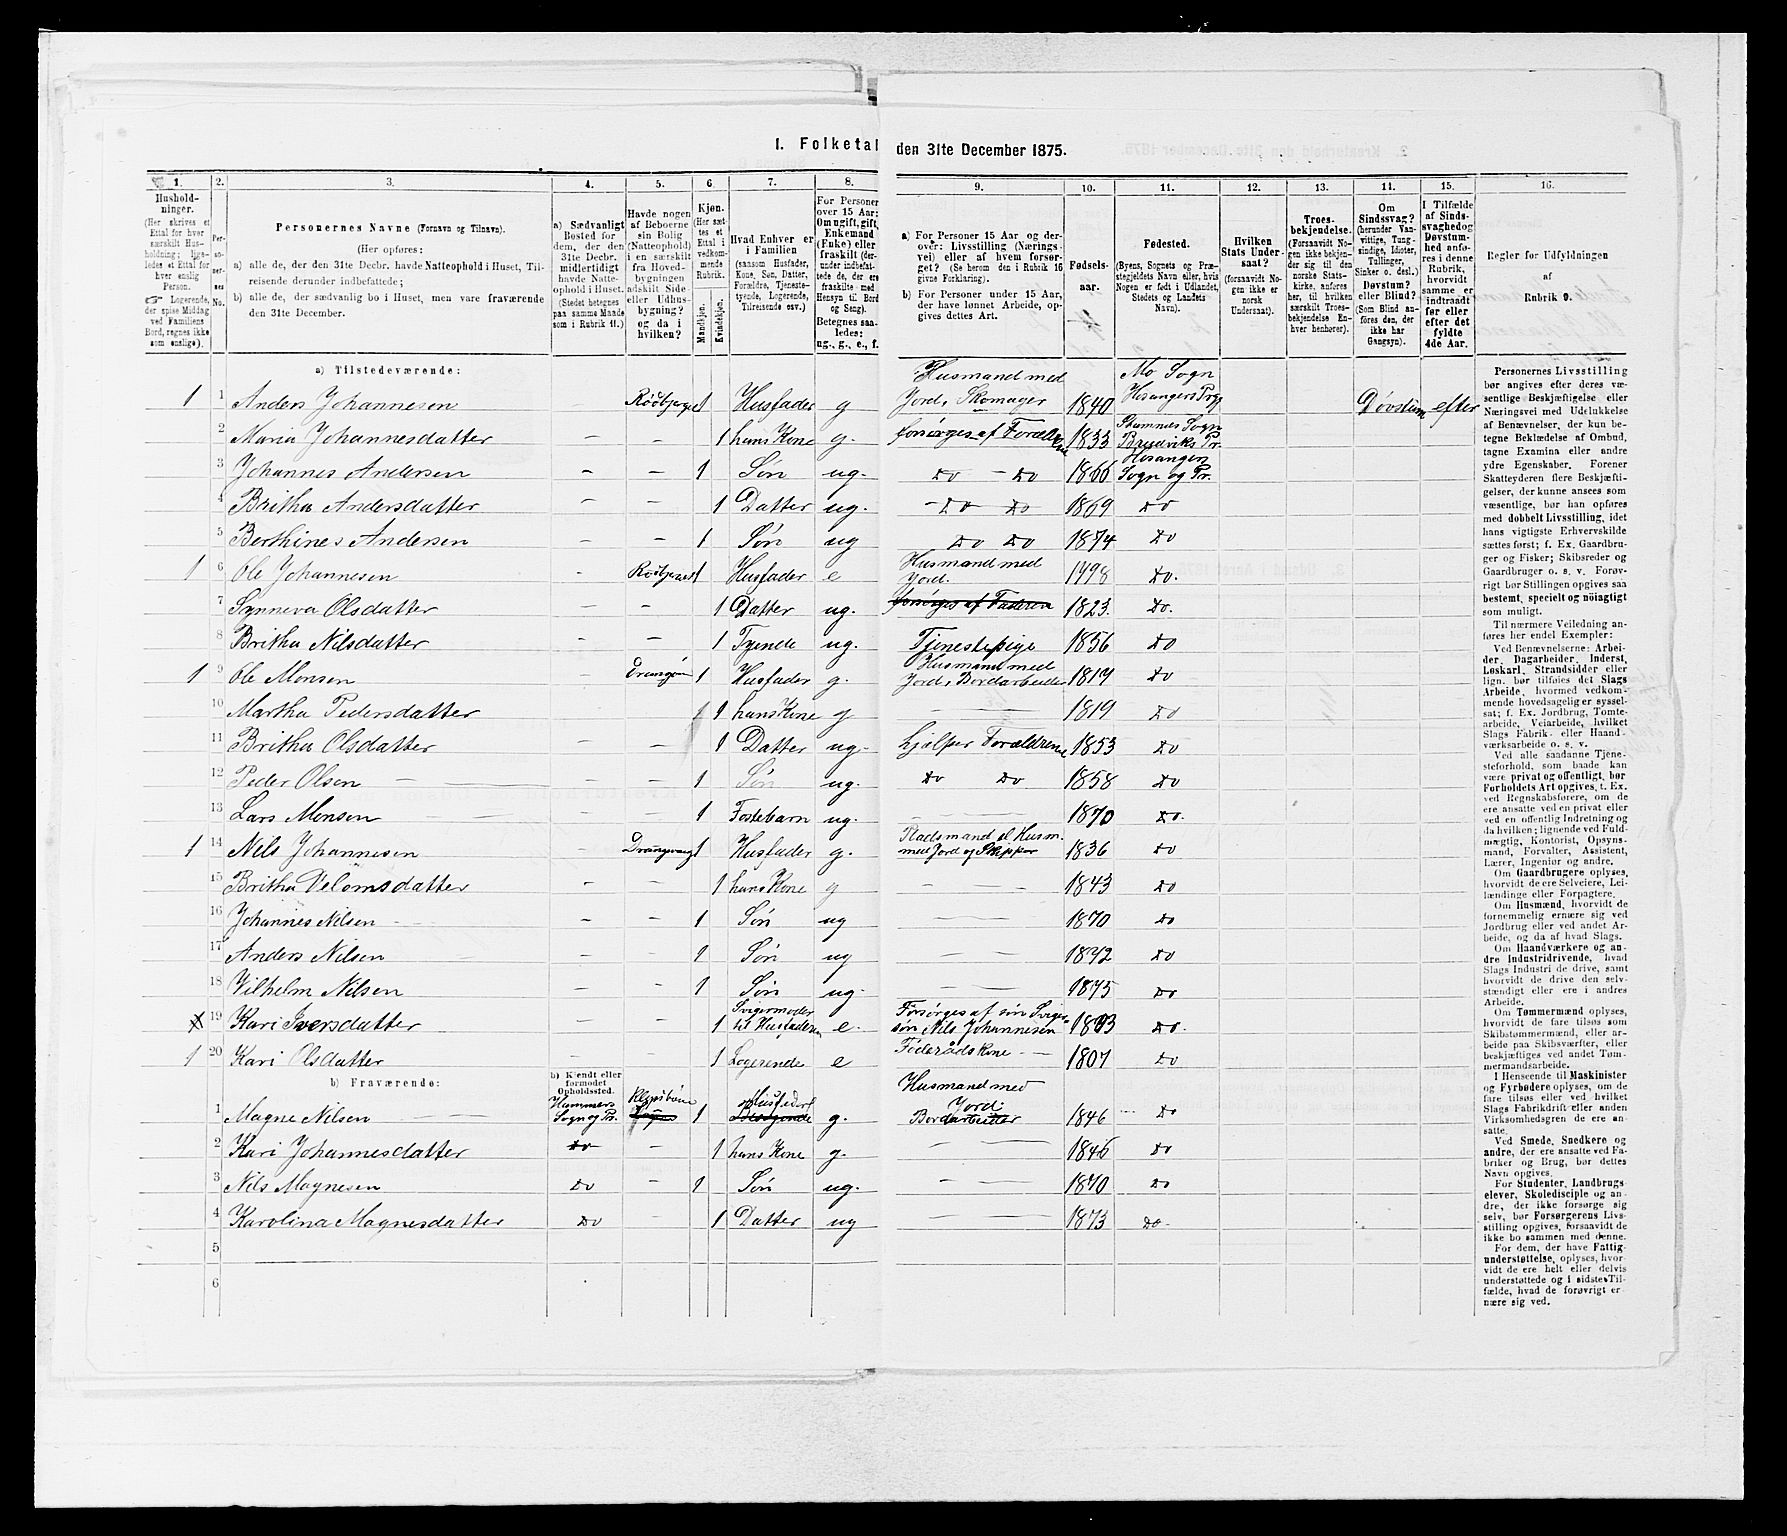 I. Folketal den 31te December 1875.
1. 2. 3. 4. 5. 6. 7. 8. 9. 10. 11. 12. 13. 14. 15. 16.
Hushold-
ninger.
(Her skrives et
Ettal for hver
særskilt Hus-
holdning; lige-
ledes et Ettal for
hver enslig
Person.
☞ Logerende,
der spise Middag
ved Familiens
Bord, regnes ikke
som enslige).
Per-
so-
ner-
nes
No.
Personernes Navne (Fornavn og Tilnavn).
(Her opføres:
a) alle de, der den 31te Decbr. havde Natteophold i Huset, Til-
reisende derunder indbefattede;
b) alle de, der sædvanlig bo i Huset, men vare fraværende
den 31te December.
a) Sædvanligt
Bosted for
dem, der den
31te Decbr.
midlertidigt
havde Natte-
ophold i Huset.
(Stedet betegnes
paa samme Maade
som i Rubrik 11.)
Havde nogen
af Beboerne
sin Bolig
(Natteophold)
i en særskilt
fra Hoved-
bygningen
adskilt Side-
eller Udhus-
bygning?
og da i
hvilken?
Kjøn.
(Her sæt-
tes et
Ettal i
vedkom-
mende
Rubrik.
Mandkjøn.
Kvindekjøn.
Hvad Enhver er
i Familien
(saasom Husfader,
Kone, Søn, Datter,
Forældre, Tjeneste-
tyende, Logerende,
Tilreisende osv.)
For Personer
over 15 Aar:
Om ugift, gift,
Enkemand
(Enke) eller
fraskilt (der-
under indbefat-
tede de, der ere
fraskilte med
Hensyn til Bord
og Seng).
Betegnes saa-
ledes:
ug., g., e., f.
a) For Personer 15 Aar og der-
over: Livsstilling (Nærings-
vei) eller af hvem forsør-
get? (Se herom den i Rubrik 16
givne Forklaring).
b) For Personer under 15 Aar,
der have lønnet Arbeide, op-
gives dettes Art.
Fødsels-
aar.
Fødested.
(Byens, Sognets og Præ-
stegjeldets Navn eller, hvis
Nogen er født i Udlandet,
Stedets og Landets
Navn).
Hvilken
Stats Under-
saat?
(forsaavidt No-
gen ikke er
norsk
Undersaat).
Troes-
bekjendelse.
(Forsaavidt No-
gen ikke bekjen-
der sig til den
norske Stats-
kirke, anføres
her, til hvilken
særskilt Troes-
bekjendelse En-
hver henhører).
Om
Sindssvag?
(herunder Van-
vittige, Tung-
sindige, Idioter,
Tullinger,
Sinker o. desl.)
Døvstum?
eller Blind?
(Som Blind an-
føres den, der
ikke har
Gangsyn).
I Tilfælde
af Sinds-
svaghed og
Døvstum-
hed anfø-
res i denne
Rubrik,
hvorvidt
samme er
indtraadt
før eller
efter det
fyldte
4de Aar.
Regler for Udfyldningen
af
Rubrik 9.
a) Tilstedeværende:
1 1 Anders Johannesen – Rødbjerget 1 Husfader g Husmand med Jord, Skomager 1840 Mo Sogn Hosangers Prgj Døvstum efter
2 Maria Johannesdatter – – 1 hans Kone g. forsørges af Forældrene 1833 Stamnes Sogn Brudviks Pr.
3 Johannes Andersen – – 1 Søn ug. Do – Do 1866 Hosangers Sogn og Pr.
4 Britha Andersdatter – – 1 Datter ug. Do Do 1869 Do
5 Berthines Andersen – – 1 Søn ug Do Do 1874 Do
1 6 Ole Johannesen – Rødbjerget 1 Husfader e Husmand med Jord. 1798 Do.
7 Synneva Olsdatter – – 1 Datter ug. forsørges af Faderen 1823. Do.
8 Britha Nilsdatter – – 1 Tyende ug. Tjenestepige 1856 Do
1 9 Ole Monsen – 1 Husfader g. Husmand med Jord, Bordarbeider 1819 Do
10 Martha Pedersdatter 1 hans Kone g — — 1819 Do
11 Britha Olsdatter – – 1 Datter ug. hjelper Forældrene 1853 Do
12 Peder Olsen – – 1 Søn ug. Do Do 1858 Do
13 Lars Monsen 1 Fosterbarn ug. 1870 Do.
1 14 Nils Johannesen – 1 Husfader g. Pladsmand el Husm. med Jord og Skipper 1836 Do
15 Britha Velomsdatter – – 1 hans Kone g — — 1843 Do
16 Johannes Nilsen – – 1 Søn ug — — 1870 Do
17 Anders Nilsen – – 1 Søn ug — — 1872 Do
18 Vilhelm Nilsen – – 1 Søn ug. — — 1875 Do
19 Kari Iversdatter – – 1 Svigermoder til Husfaderen e. Forsørges af søn Sviger= søn Nils Johannesen Do.
1 20 Kari Olsdatter – – 1 Logerende e Føderådskone — 1807 Do
b) Fraværende:
b) Kjendt eller
formodet
Opholdssted.
1 Magne Nilsen Hammers Sogn og Pr. 1 Husfader g. Husmand med Jord. Bordarbeider 1846 Do
2 Kari Johannesdatter Do – 1 hans Kone g. — — 1846 Do
3 Nils Magnesen Do – 1 Søn ug. — — 1870 Do
4 Karolina Magnesdatter Do 1 Datter ug 1873 Do.
5
6
Personernes Livsstilling
bør angives efter deres væ-
sentlige Beskjæftigelse eller
Næringsvei med Udelukkelse
af Benævnelser, der kun be-
tegne Beklædelse af Ombud,
tagne Examina eller andre
ydre Egenskaber. Forener
Skatteyderen flere Beskjæfti-
gelser, der kunne ansees som
væsentlige, bør han opføres
med dobbelt Livsstilling, idet
hans vigtigste Erhvervskilde
sættes først; f. Ex. Gaardbru-
ger og Fisker; Skibsreder og
Gaardbruger o. s. v. Forøv-
rigt bør Stillingen opgives saa
bestemt, specielt og nøiagtigt
som muligt.
Til nærmere Veiledning an-
føres her endel Exempler:
Ved Benævnelserne: Arbei-
der, Dagarbeider, Inderst,
Løskarl, Strandsidder eller
lign. bør tilføies det Slags
Arbeide, hvormed vedkom-
mende hovedsagelig er syssel-
sat; f. Ex. Jordbrug, Tomte-
arbeide, Veiarbeide, hvilket
Slags Fabrik- eller Haand-
værksarbeide o. s. v.
Ved alle saadanne Tjene-
steforhold, som baade kan
være privat og offentligt, bør
Forholdets Art opgives, t. Ex.
ved Regnskabsførere, om de
ere ansatte ved en privat eller
ved en offentlig Indretning og
da hvilken; lignende ved Fuld-
mægtig, Kontorist, Opsyns-
mand, Forvalter, Assistent,
Lærer, Ingeniør og andre.
Om Gaardbrugere oplyses,
hvorvidt de ere Selveiere, Lei-
lændinge eller Forpagtere.
Om Husmænd, hvorvidt de
fornemmelig ernære sig ved
Jordbrug eller ved andet Ar-
beide, og da af hvad Slags.
Om Haandværkere og an-
dre Industridrivende, hvad
Slags Industri de drive, samt
hvorvidt de drive den selv-
stændigt eller ere i andres
Arbeide.
Om Tømmermænd oplyses,
hvorvidt de fare tilsøs som
Skibstømmermænd, eller ar-
beide paa Skibsværfter, eller
beskjæftiges ved andet Tøm-
mermandsarbeide.
I Henseende til Maskinister
og Fyrbødere oplyses, om de
fare tilsøs eller ved hvilket
Slags Fabrikdrift eller anden
Virksomhedsgren de ere an-
satte.
Ved Smede, Snedkere og
andre, der ere ansatte ved Fa-
briker og Brug, bør dettes
Navn opgives.
For Studenter, Landbrugs-
elever, Skoledisciple og an-
dre, der ikke forsørge sig
selv, bør Forsørgerens Livs-
stilling opgives, forsaavidt de
ikke bo sammen med denne.
For dem, der have Fattig-
understøttelse, oplyses, hvor-
vidt de ere helt eller delvis
understøttede og i sidste Til-
fælde, hvad de forøvrigt er-
nære sig ved.